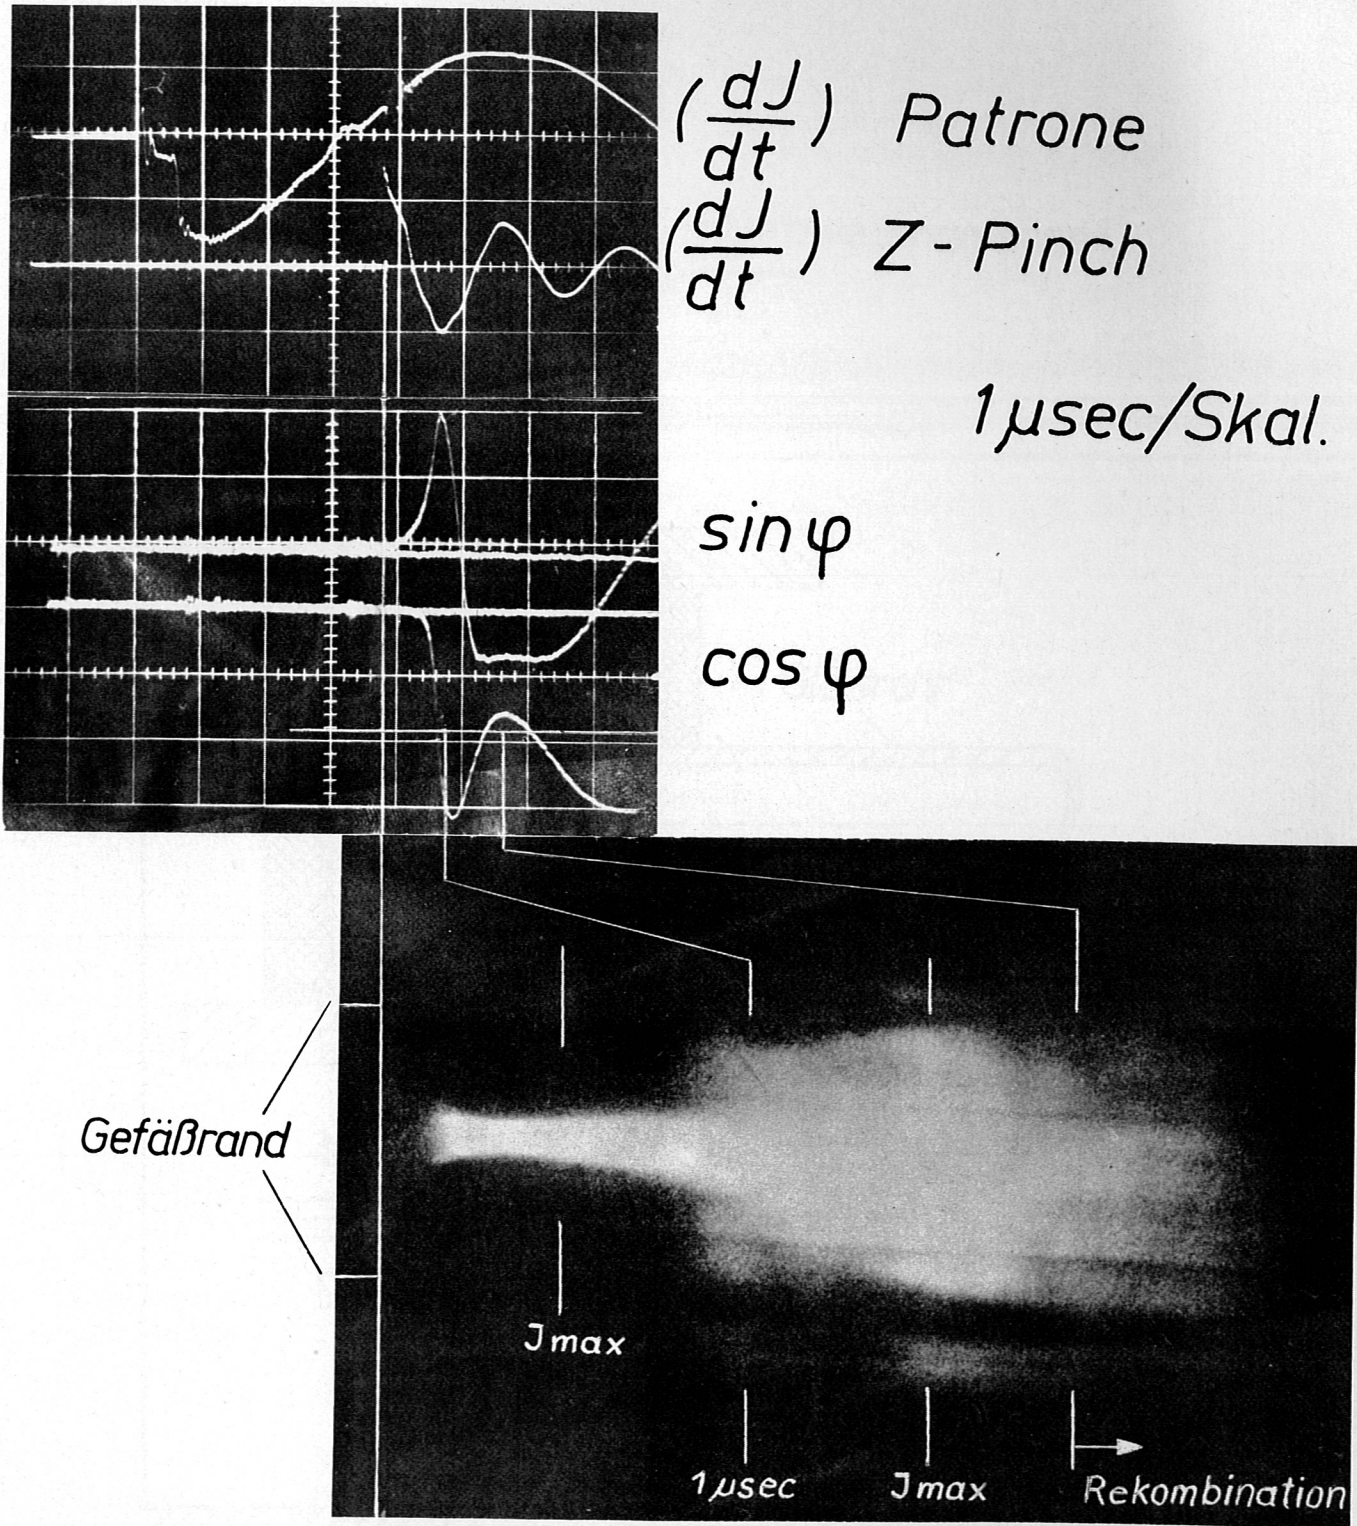 (dJ/dt) Patrone
(dJ/dt) Z-Pinch
1μsec/Skal.
sin φ
cos φ
Gefäßrand
Jmax
1μsec
Jmax
Rekombination